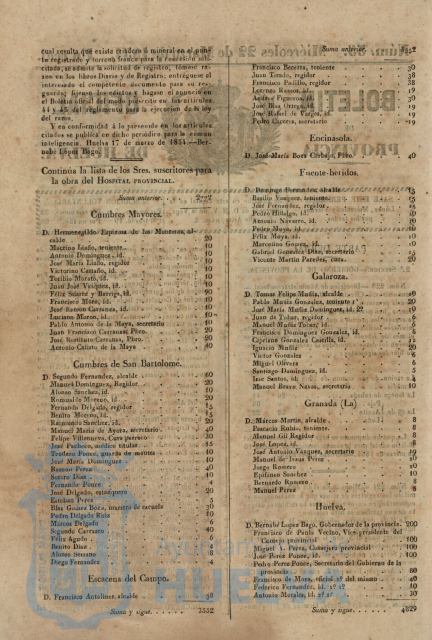 cual resulta que exista criadero ó mineral en el punto registrado y terreno franco para la concesion solicitada, se admite la solicitud de registro, tómese razon en los libros Diario y de Registro; entréguese al interesado el competente documento para su resguardo; fíjense los edictos y hágase el anuncio en el Boletin oficial del modo prescrito en los artículos 44 y 45 del reglamento para la ejecucion de la ley del ramo.
Y en conformidad á lo prevenido en los artículos citados se publica en dicho periódico para la comun inteligencia. Huelva 17 de marzo de 1854.—Bernabé Lopez Bago.
Continúa la lista de los Sres. suscritores para la obra del HOSPITAL PROVINCIAL.
Suma anterior.
Cumbres Mayores.
D. Hermenegildo Espinosa de los Monteros, alcalde 20
Martino Liaño, teniente 10
Antonio Dominguez, id. 10
José María Liaño, regidor 10
Victorino Castaño, id. 10
Toribio Morato, id. 10
Juan José Vazquez, id. 10
Felix Suarez y Barriga, id. 20
Francisco Moro, id. 10
José Ramon Carranza, id. 10
Luciano Maron, id. 10
Pablo Antonio de la Maya, secretario 40
Juan Francisco Carranza, Pbro. 20
José Restituto Carranza, Pbro. 20
Antonio Calisto de la Maya 40
Cumbres de San Bartolomé.
D. Segundo Fernandez, alcalde 60
Manuel Dominguez, Regidor 20
Alonso Sanchez, id. 10
Romualdo Moreno, id. 20
Fernando Delgado, regidor 15
Benito Moreno, id. 15
Raimundo Sanchez, id. 20
Manuel María de Ayora, secretario 40
Felipe Villanueva, Cura párroco 30
José Pacheco, médico titular 35
Teodoro Ponce, guarda de montes 10
José María Dominguez 10
Ramon Perez 40
Sotero Diaz 10
Fernando Ponce 4
José Delgado, estanquero 20
Esteban Perez 5
Blas Gomez Boza, maestro de escuela 30
Pedro Delgado Ruiz 10
Marcos Delgado 6
Segundo Carrasco 40
Felix Agudo 6
Benito Diaz 6
Alonso Serrano 8
Diego Fernandez 4
Escacena del Campo.
D. Francisco Antolinez, alcalde 38
Suma y sigue 3552
Suma anterior. 3552
Francisco Becerra, teniente 30
Juan Tirado, regidor 38
Francisco Padillo, regidor 38
Lorenzo Ramos, id. 19
Andrés Figueroa, id. 30
José Diaz Ortega, id. 19
José Rafael de Vargas, id. 19
Pedro Caceres, secretario 19
Encinasola.
D. José María Bors Carbajo, Pbro. 40
Fuente-heridos.
D. Domingo Fernandez, alcalde 15
Basilio Vazquez, teniente 15
José Fernandez, regidor 15
Pedro Hidalgo, id. 10
Antonio Navarro, id. 20
Pedro Moya, id. 10
Felix Moya, id. 10
Marcelino Gomez, id. 10
Gabriel Gonzalez Diaz, secretario 15
Vicente Martin Paredes, cura 20
Galaroza.
D. Tomas Felipe Muñiz, alcalde 40
Pablo Muñiz Gonzalez, teniente 1º 20
José María Muñiz Dominguez, id. 2º 10
Juan de Tobar, regidor 6
Manuel Muñiz Torné, id. 6
Francisco Dominguez Gonzalez, id. 6
Cipriano Gonzalez Castilla, id. 15
Ignacio Muñiz 20
Victor Gonzalez 6
Miguel Olivera 6
Santiago Dominguez, id. 5
José Santos, id. 4
Manuel Bravo Navas, secretario 10
Granada (La)
D. Márcos Martin, alcalde 8
Pastacio Rubio, teniente 8
Manuel Gil Regidor 8
José Lopez, id. 8
José Antonio Vazquez, secretario 19
Manuel de Isaias Perez 20
Jorge Romero 10
Epifanio Sanchez 10
Bernardo Romero 8
Manuel Perez 8
Huelva.
D. Bernabé Lopez Bago, Gobernador de la provincia. 200
Francisco de Paula Vecino, Vice-presidente del Consejo provincial 100
Miguel A. Perez, Consejero provincial 100
José Perez Ponce, id. 100
Pedro Perez Ponce, Secretario del Gobierno de la provincia 80
Francisco de Mora, oficial 1º del mismo 40
Federico Fernandez, id. 2º 30
Antonio Morales, id. 30
Suma y sigue 4829
Ayuntamiento
HUELVA